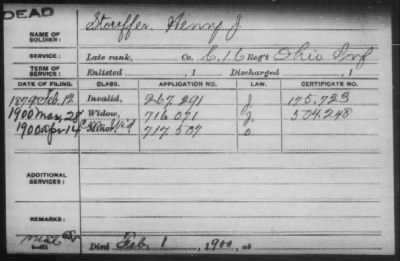 DEAD
NAME OF SOLDIER: Stouffer Henry J.
SERVICE: Late rank, Co. C, 16 Reg't Ohio Inf
TERM OF SERVICE: Enlisted , 1 Discharged , 1
DATE OF FILING. CLASS. APPLICATION NO. LAW. CERTIFICATE NO.
1879 Feb. 12 Invalid, 267.291 J 175.723
1900 Mar. 28 Widow, 716.071 J. 504.248
1900 Apr 14 Minor, 717.507
ADDITIONAL SERVICES:
REMARKS:
Died Feb. 1, 1900, at